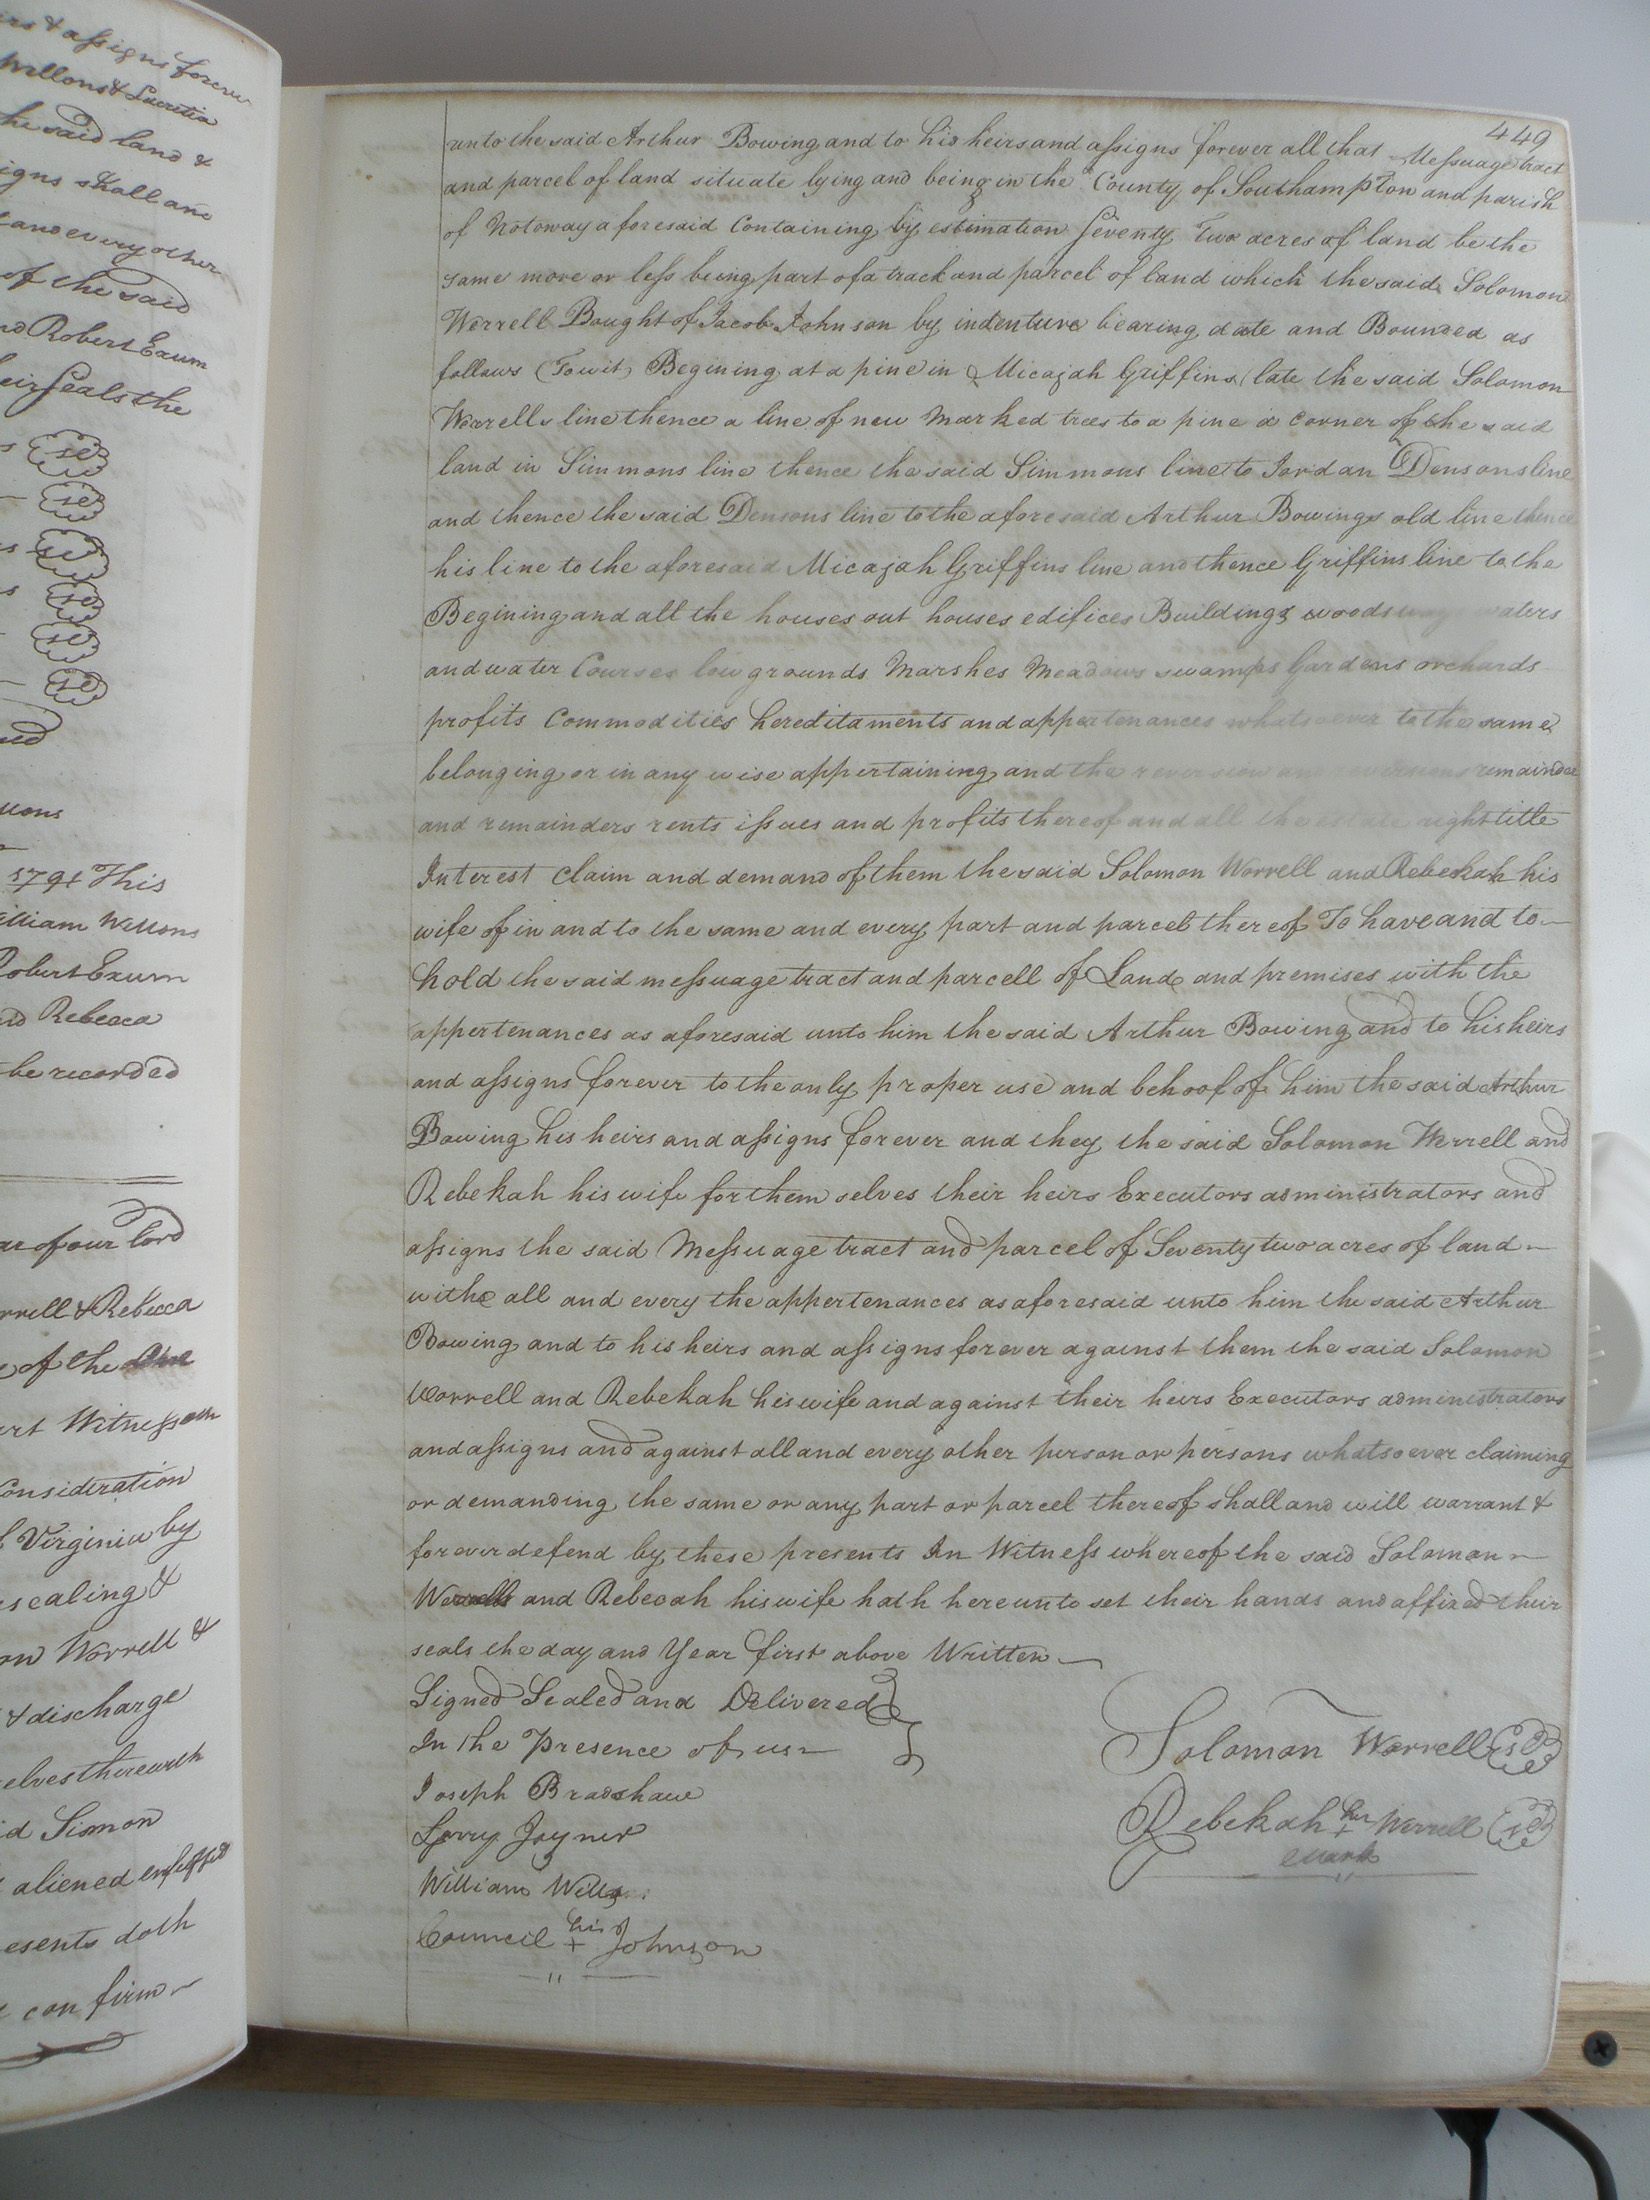 irs & assigns forever
Wellons & Lucretia
he said land &
igns shall and
and every other
of the said
nd Robert Exum
eir seals the
sed
mons
1791 This
illiam Wellons
Robert Exum
and Rebecca
be recorded
ar of our lord
rrell & Rebecca
of the
rt Witnesseth
Consideration
Virginia by
sealing &
on Worrell &
& discharge
elves therewith
id Simon
aliened enfeoffed
esents doth
confirm
449
unto the said Arthur Bowing and to his heirs and assigns forever all that Messuage tract
and parcel of land situate lying and being in the County of Southampton and parish
of Notoway aforesaid Containing by estimation Seventy Two acres of land be the
same more or less being part of a track and parcel of land which the said Solomon
Werrell Bought of Jacob Johnson by indenture bearing date and Bounded as
follows (Towit) Begining at a pine in Micajah Griffins late the said Solomon
Worrells line thence a line of new marked trees to a pine a corner of the said
land in Simmons line thence the said Simmons line to Jordan Densons line
and thence the said Densons line to the aforesaid Arthur Bowings old line thence
his line to the aforesaid Micajah Griffins line and thence Griffins line to the
Begining and all the houses out houses edifices Buildings woods ways waters
and water Courses low grounds Marshes Meadows swamps Gardens orchards
profits Commodities hereditaments and appertenances whatsoever to the same
belonging or in any wise appertaining and the reversion and reversions remainder
and remainders rents issues and profits thereof and all the estate right title
Interest Claim and demand of them the said Solomon Worrell and Rebekah his
wife of in and to the same and every part and parcel thereof To have and to
hold the said messuage tract and parcell of Land and premises with the
appertenances as aforesaid unto him the said Arthur Bowing and to his heirs
and assigns forever to the only proper use and behoof of him the said Arthur
Bowing his heirs and assigns forever and they the said Solomon Werrell and
Rebekah his wife for them selves their heirs Executors administrators and
assigns the said Messuage tract and parcel of Seventy two acres of land
with all and every the appertenances as aforesaid unto him the said Arthur
Bowing and to his heirs and assigns forever against them the said Solomon
Worrell and Rebekah his wife and against their heirs Executors administrators
and assigns and against all and every other person or persons whatsoever claiming
or demanding the same or any part or parcel thereof shall and will warrant &
forever defend by these presents In Witness whereof the said Solomon
Worrell and Rebecah his wife hath hereunto set their hands and affixed their
seals the day and Year first above Written
Signed Sealed and Delivered
In the Presence of us
Joseph Bradshaw
Lerry Joyner
William Wills
Council his + Johnson
Solomon Worrell
Rebekah her + Worrell
Mark